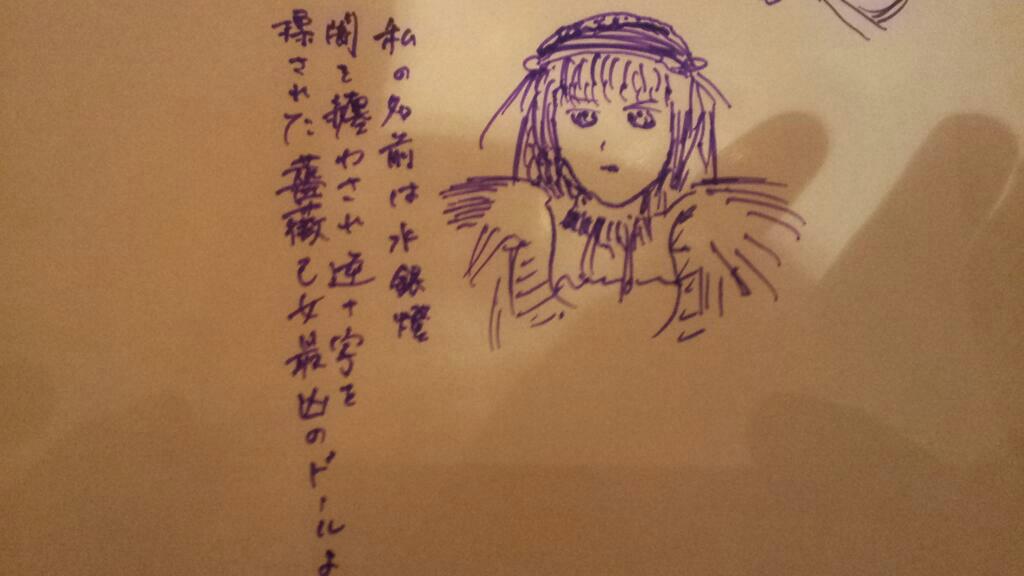 私の名前は水銀燈
闇を纏わされ逆十字を
標された薔薇乙女最凶のドールよ